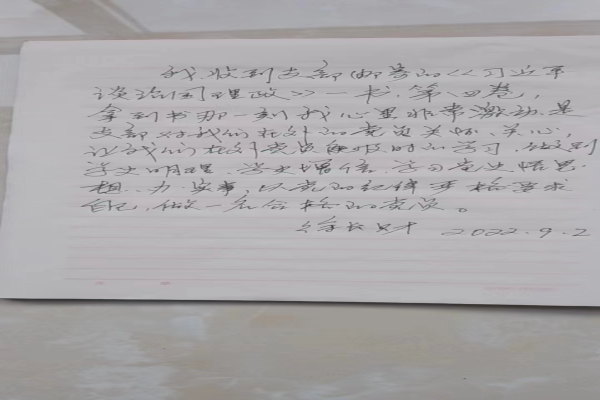 我收到支部邮寄的《习近平
谈治国理政》一书,第四卷,
拿到书那一刻我心里非常激动,是
支部对我们在外的党员关怀、关心,
让我们在外党员及时的学习,做到
学史明理、学史增信、学习党史悟思
想、办实事,以党的纪律严格要求
自己,做一名合格的党员。
徐长财 2022.9.2